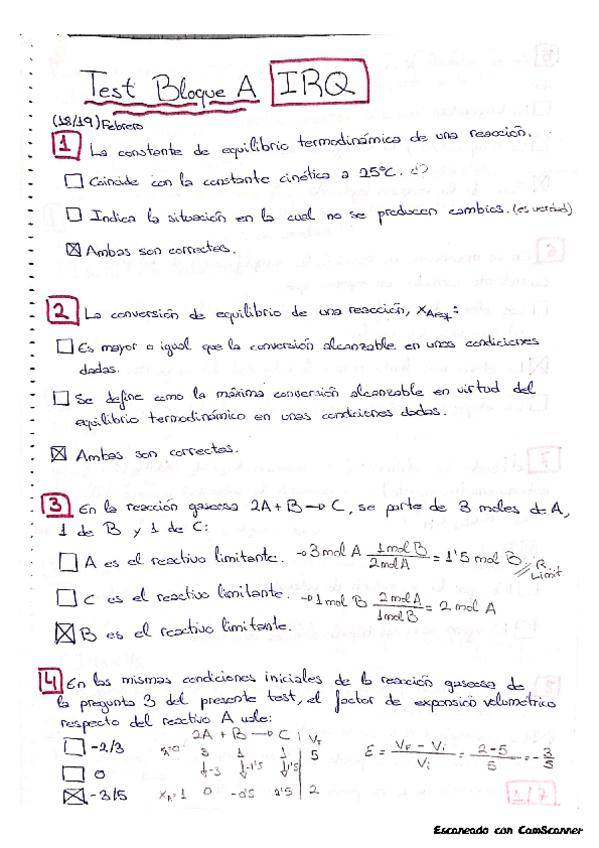 Test Bloque A IRQ
(18/19) Febrero
1 La constante de equilibrio termodinámica de una reacción.
☐ Coincide con la constante cinética a 25ºC. ¿?
☐ Indica la situación en la cual no se producen cambios. (es verdad)
☒ Ambas son correctas.
2 La conversión de equilibrio de una reacción, XAeq:
☐ Es mayor o igual que la conversión alcanzable en unas condiciones
dadas.
☐ Se define como la máxima conversión alcanzable en virtud del
equilibrio termodinámico en unas condiciones dadas.
☒ Ambas son correctas.
3 En la reacción gaseosa 2A + B → C, se parte de 3 moles de A,
1 de B y 1 de C:
☐ A es el reactivo limitante. → 3 mol A 1 mol B / 2 mol A = 1'5 mol B // R. Limit.
☐ C es el reactivo limitante. → 1 mol B 2 mol A / 1 mol B = 2 mol A
☒ B es el reactivo limitante.
4 En las mismas condiciones iniciales de la reacción gaseosa de
la pregunta 3 del presente test, el factor de expansión volumétrico
respecto del reactivo A vale:
2A + B → C | VT
☐ -2/3 X=0 3 1 1 | 5 ε = (VF - Vi) / Vi = (2-5) / 5 = -3/5
☐ 0 ↓-3 ↓-1'5 ↓1'5
☒ -3/5 XA=1 0 -0'5 2'5 | 2
1/7
Escaneado con CamScanner